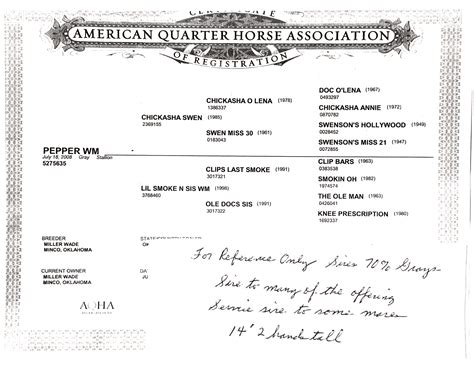 CERTIFICATE
AMERICAN QUARTER HORSE ASSOCIATION
OF REGISTRATION
DOC O'LENA (1967)
0493297
CHICKASHA O LENA (1978)
1386337
CHICKASHA ANNIE (1972)
0870782
CHICKASHA SWEN (1985)
2369155
SWENSON'S HOLLYWOOD (1949)
0028452
SWEN MISS 30 (1961)
0183043
SWENSON'S MISS 21 (1947)
0072855
PEPPER WM
July 18, 2008 Gray Stallion
5275635
CLIP BARS (1963)
0383538
CLIPS LAST SMOKE (1991)
3017321
SMOKIN OH (1982)
1974574
LIL SMOKE N SIS WM (1998)
3768460
THE OLE MAN (1963)
0426041
OLE DOCS SIS (1991)
3017322
KNEE PRESCRIPTION (1980)
1692337
BREEDER
MILLER WADE
MINCO, OKLAHOMA
CURRENT OWNER
MILLER WADE
MINCO, OKLAHOMA
DA
JU
AQHA
For Reference Only Sires 70% Grays
Sire to many of the offering
Service sire to some mares
14' 2 hands tall